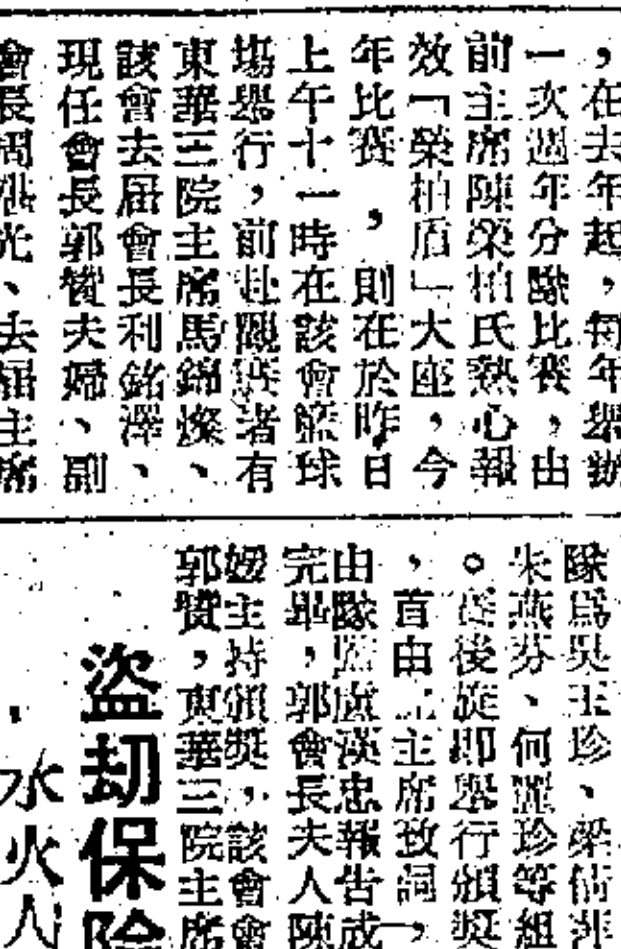 ，在去年起，每年舉辦
一次週年分隊比賽，由
前主席陳榮柏氏熱心報
效「榮柏盾」大座，今
年比賽，則在於昨日
上午十一時在該會籃球
塲舉行，前赴觀賽者有
東華三院主席馬錦燦、
該會去屆會長利銘澤、
現任會長郭贊夫婦、副
會長周湛光、去屆主席
隊爲吳玉珍、梁倩非
朱燕芬、何麗珍等組
。賽後旋即舉行頒獎
，首由主席致詞，
由隊監盧漢忠報告成
完畢，郭會長夫人陳
嫒主持頒獎，該會會
郭贊，東華三院主席
盜刧保險
水火人